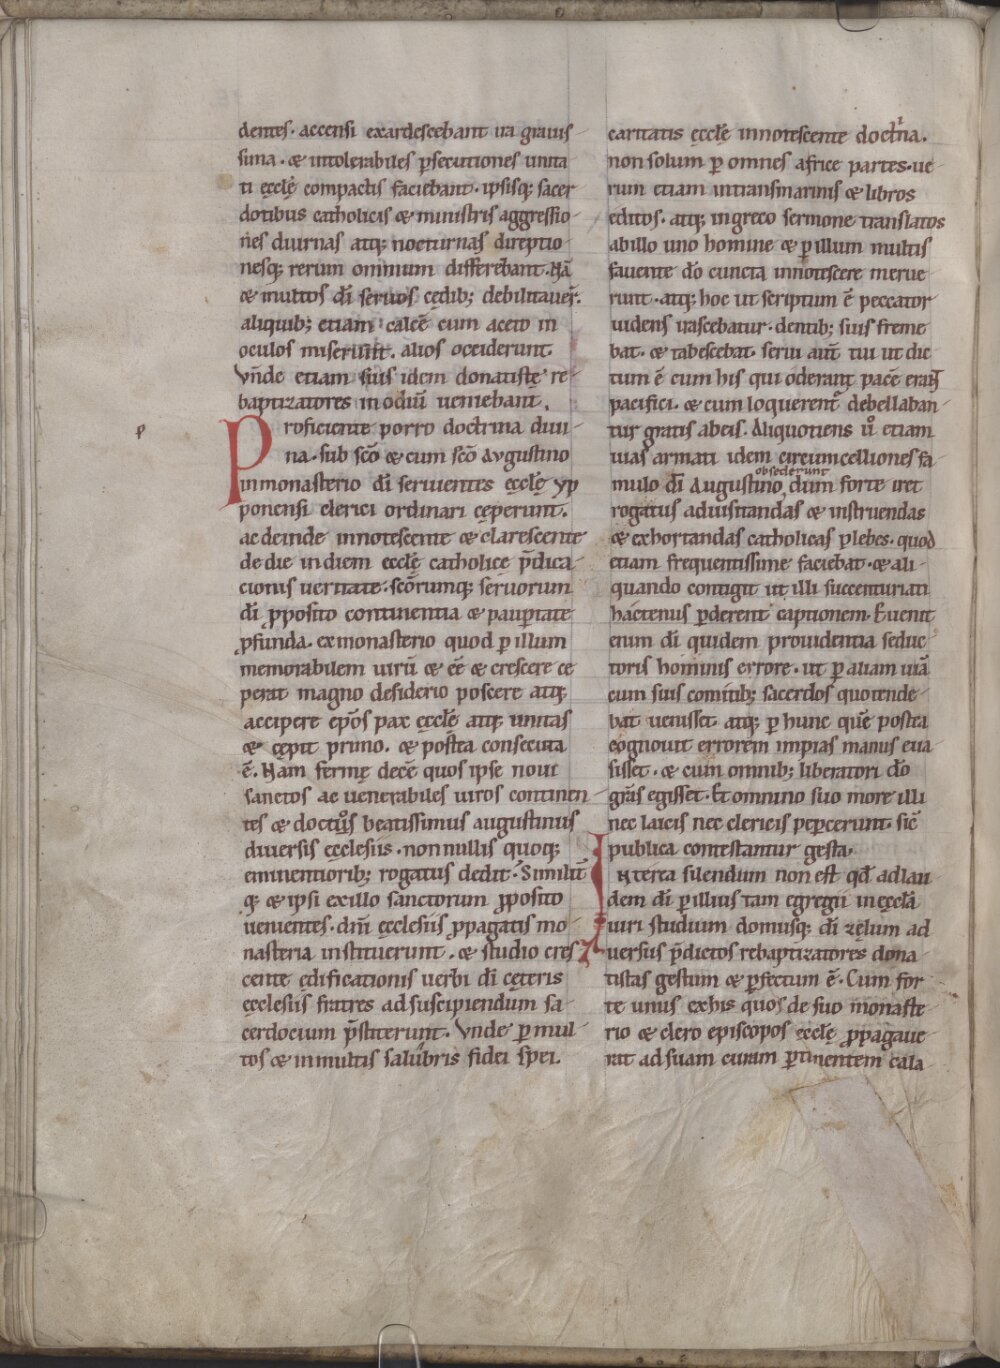 dentes· accensi exardescebant ira grauis
sima· & intolerabiles ꝑsecutiones unita
ti ęcclę̄ compactis faciebant· ipsisq; sacer
dotibus catholicis & ministris aggressio
nes diurnas atq; nocturnas direptio
nesq; rerum omnium differebant· Nā
& multos dī seruos cędib; debilitauer̄·
aliquib; etiam calcē cum aceto in
oculos miserunt· alios occiderunt·
Vn̄de etiam suis idem donatistę re
baptizatores in odiū ueniebant·
p
Proficiente porro doctrina diui
na· sub sc̄o & cum sc̄o Avgustino
in monasterio dī seruientes ęcclę̄ yp
ponensi clerici ordinari cęperunt·
ac deinde innotescente & clarescente
de die in diem ęcclę̄ catholice p̄dica
cionis ueritate· sc̄orumq; seruorum
dī ꝓposito continentia & pauꝑtate
ꝓfunda· ex monasterio quod ꝑ illum
memorabilem uirū & eē & crescere cę
perat magno desiderio poscere atq;
accipere ep̄os pax ęcclę̄ atq; unitas
& cępit primo· & postea consecuta
ē· Nam fermę decē quos ipse noui
sanctos ac uenerabiles uiros continen
tes & doctos beatissimus augustinus
diuersis ęcclesiis· nonnullis quoq;
eminentiorib; rogatus dedit· Similit̄
q; & ipsi ex illo sanctorum ꝓposito
uenientes· dn̄i ęcclesiis ꝓpagatis mo
nasteria instituerunt· & studio cres
cente ędificationis uerbi dī cęteris
ęcclesiis fratres ad suscipiendum sa
cerdocium p̄stiterunt· Vnde ꝑ mul
tos & in multis salubris fidei spei·
caritatis ęcclę̄ innotescente doctⁱna·
non solum ꝑ omnes africe partes· ue
rum etiam in transmarinis & libros
editos· atq; in greco sermone translatos
ab illo uno homine & ꝑ illum multis
fauente dō cuncta innotescere merue
runt· atq; hoc ut scriptum ē peccator
uidens irascebatur· dentib; suis freme
bat· & tabescebat· serui aut̄ tui ut dic
tum ē cum his qui oderant pacē erant
pacifici· & cum loquerent̄ debellaban
tur gratis ab eis· Aliquotiens u̓o etiam
uias armati idem circumcelliones fa
obsederunt
mulo dī Augustino, dum forte iret
rogatus ad uisitandas & instruendas
& exhortandas catholicas plebes· quod
etiam frequentissime faciebat· & ali
quando contigit ut illi succenturiati
hactenus ꝑderent captionem· Euenit
enim dī quidem prouidentia seduc
toris hominis errore· ut ꝑ aliam uiā
cum suis comitib; sacerdos quo tende
bat uenisset· atq; ꝑ hunc quē postea
cognouit errorem impias manus eua
sisset· & cum omnib; liberatori dō
gr̄as egisset· Et omnino suo more illi
nec laicis nec clericis peꝑcerunt· sic̄
publica contestantur gesta·
INterea silendum non est qd̄ ad lau
dem dī ꝑ illius tam egregii in ęcclā
uiri studium domusq; dī zęlum ad
uersus p̄dictos rebaptizatores dona
tistas gestum & ꝑfectum ē· Cum for
te unus ex his quos de suo monaste
rio & clero episcopos ęcclę̄ ꝓpagaue
rat ad suam curam ꝑtinentem cala